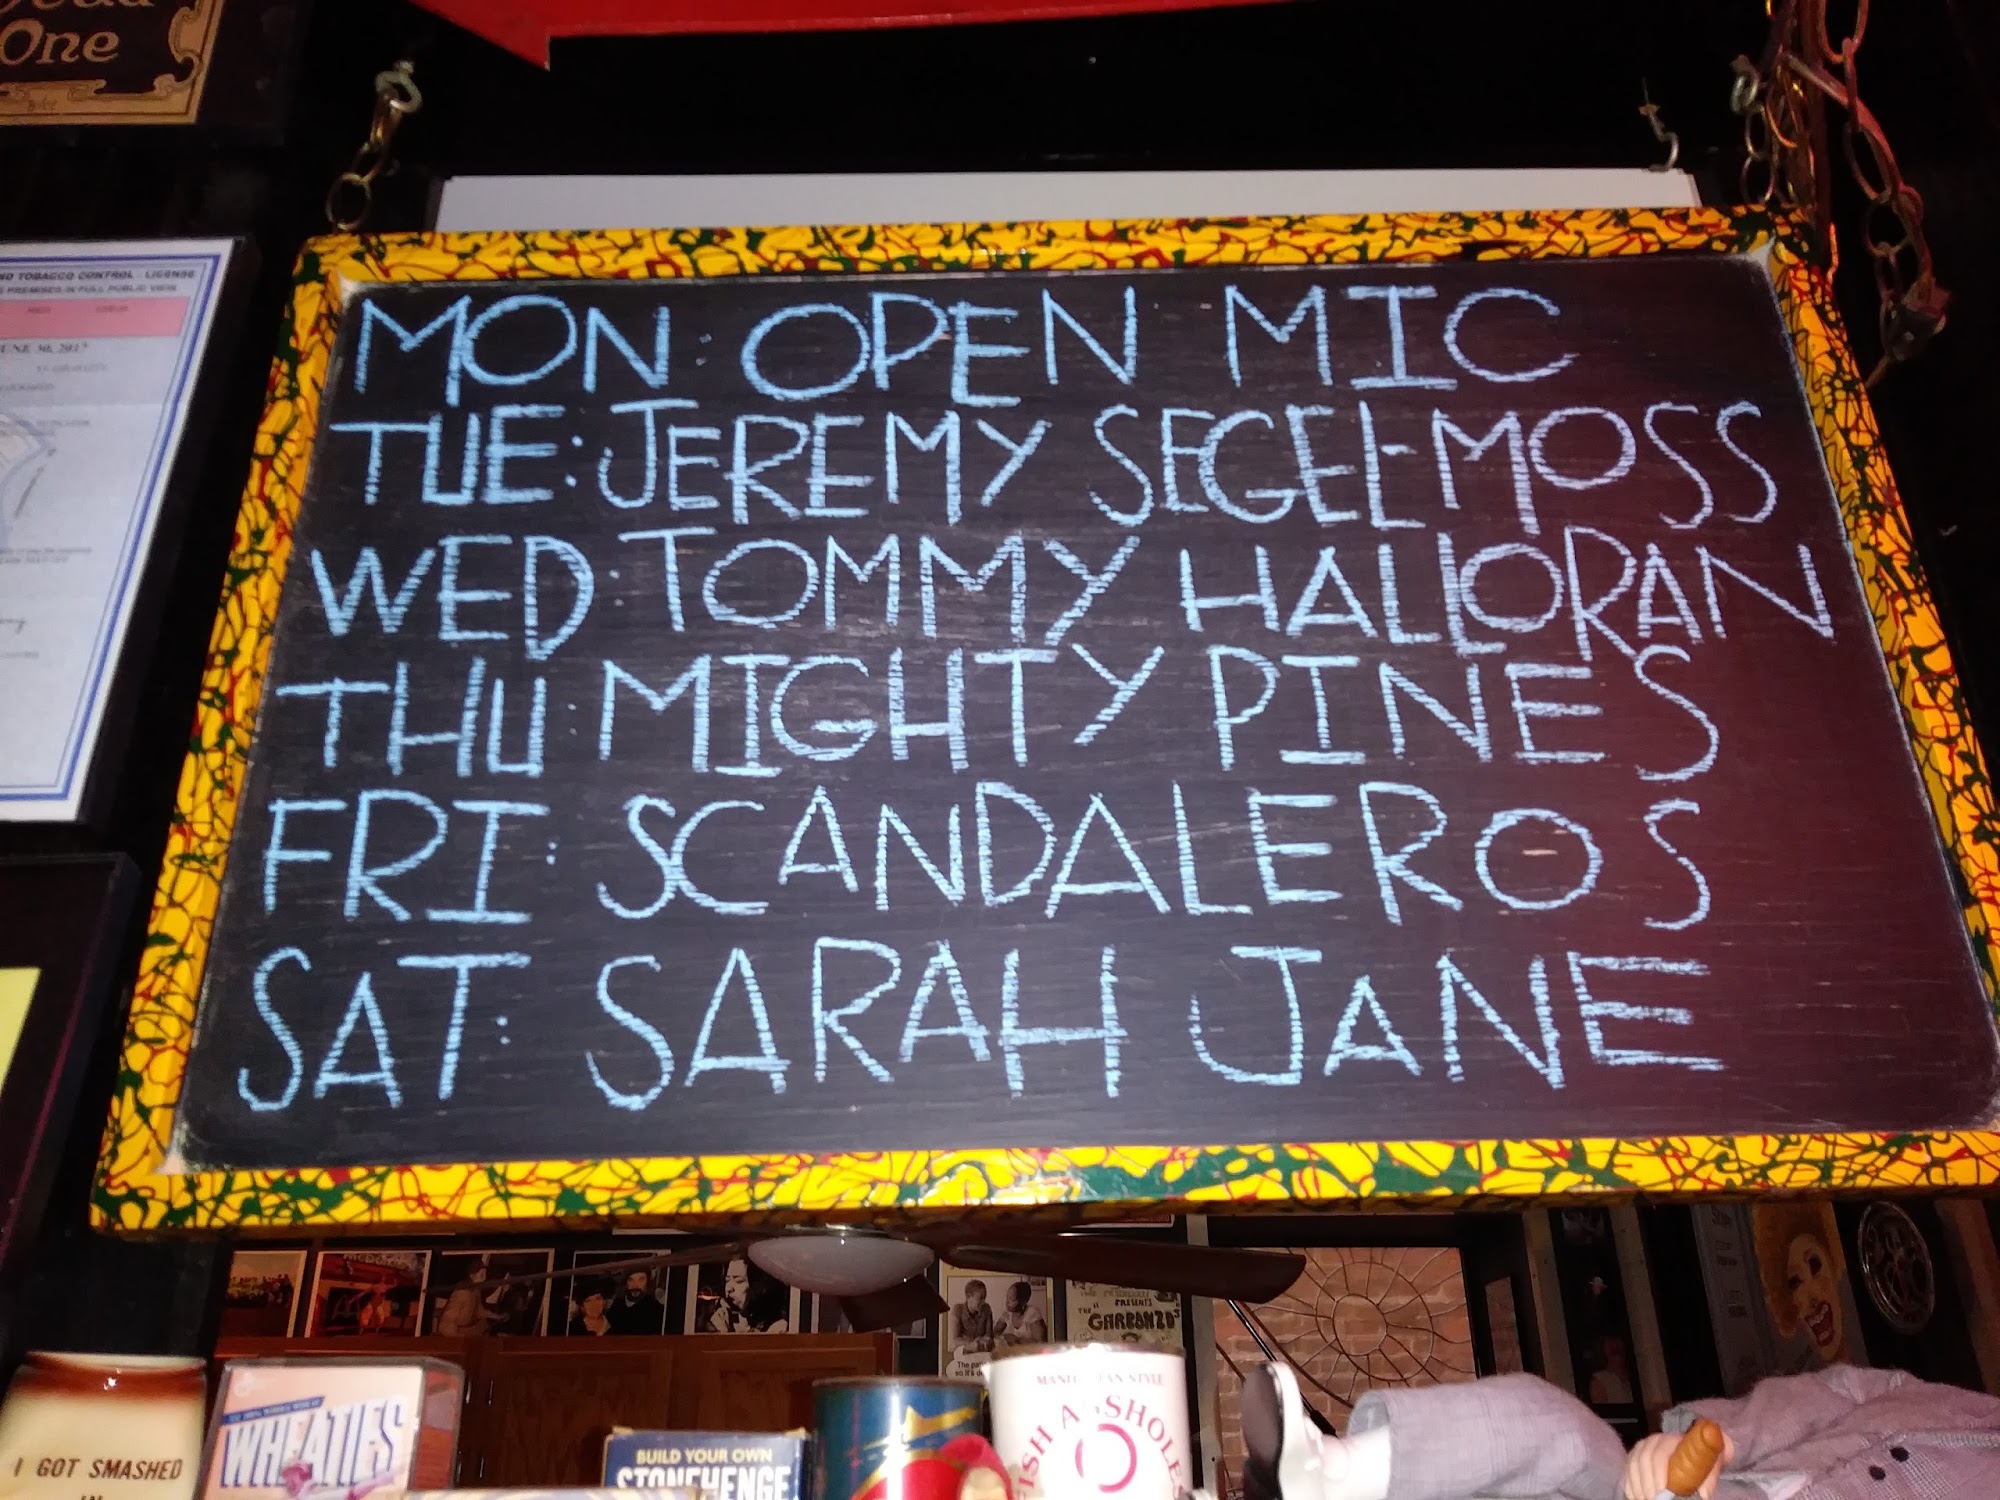 One
ND TOBACCO CONTROL - LICENSE
PREMISES IN FULL PUBLIC VIEW
JUNE 30, 2017
MON: OPEN MIC
TUE: JEREMY SEGEL-MOSS
WED: TOMMY HALLORAN
THU: MIGHTY PINES
FRI: SCANDALEROS
SAT: SARAH JANE
PRESENTS
THE "GARBANZOS"
I GOT SMASHED
IN
WHEATIES
BUILD YOUR OWN
STONEHENGE
MANHATTAN STYLE
FISH ASSHOLES